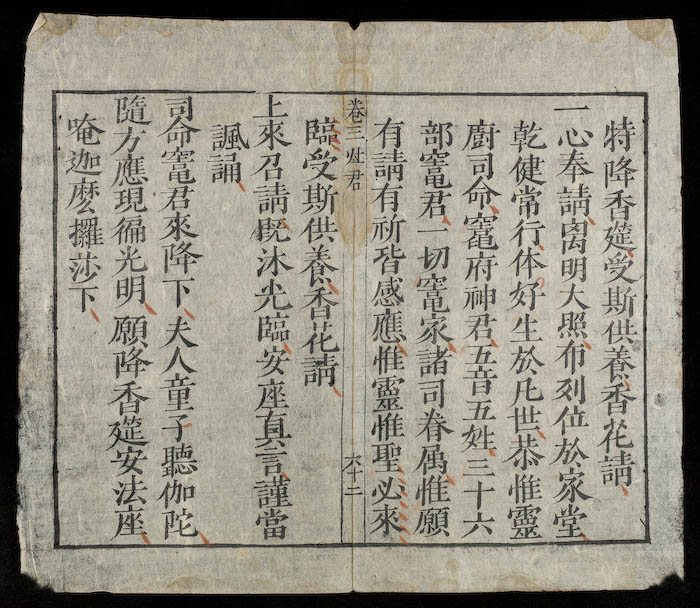 特降香筵受斯供養香花請
一心奉請离明大照布列位於家堂
乾健常行体好生於凡世恭惟靈
廚司命竈府神君五音五姓三十六
部竈君一切竈家諸司眷属惟願
有請有祈皆感應惟靈惟聖必來
卷三灶君 六十二
臨受斯供養香花請
上來召請既沐光臨安座真言謹當
諷誦
司命竈君來降下夫人童子聽伽陀
隨方應現徧光明願降香筵安法座
唵迦麽攞莎下